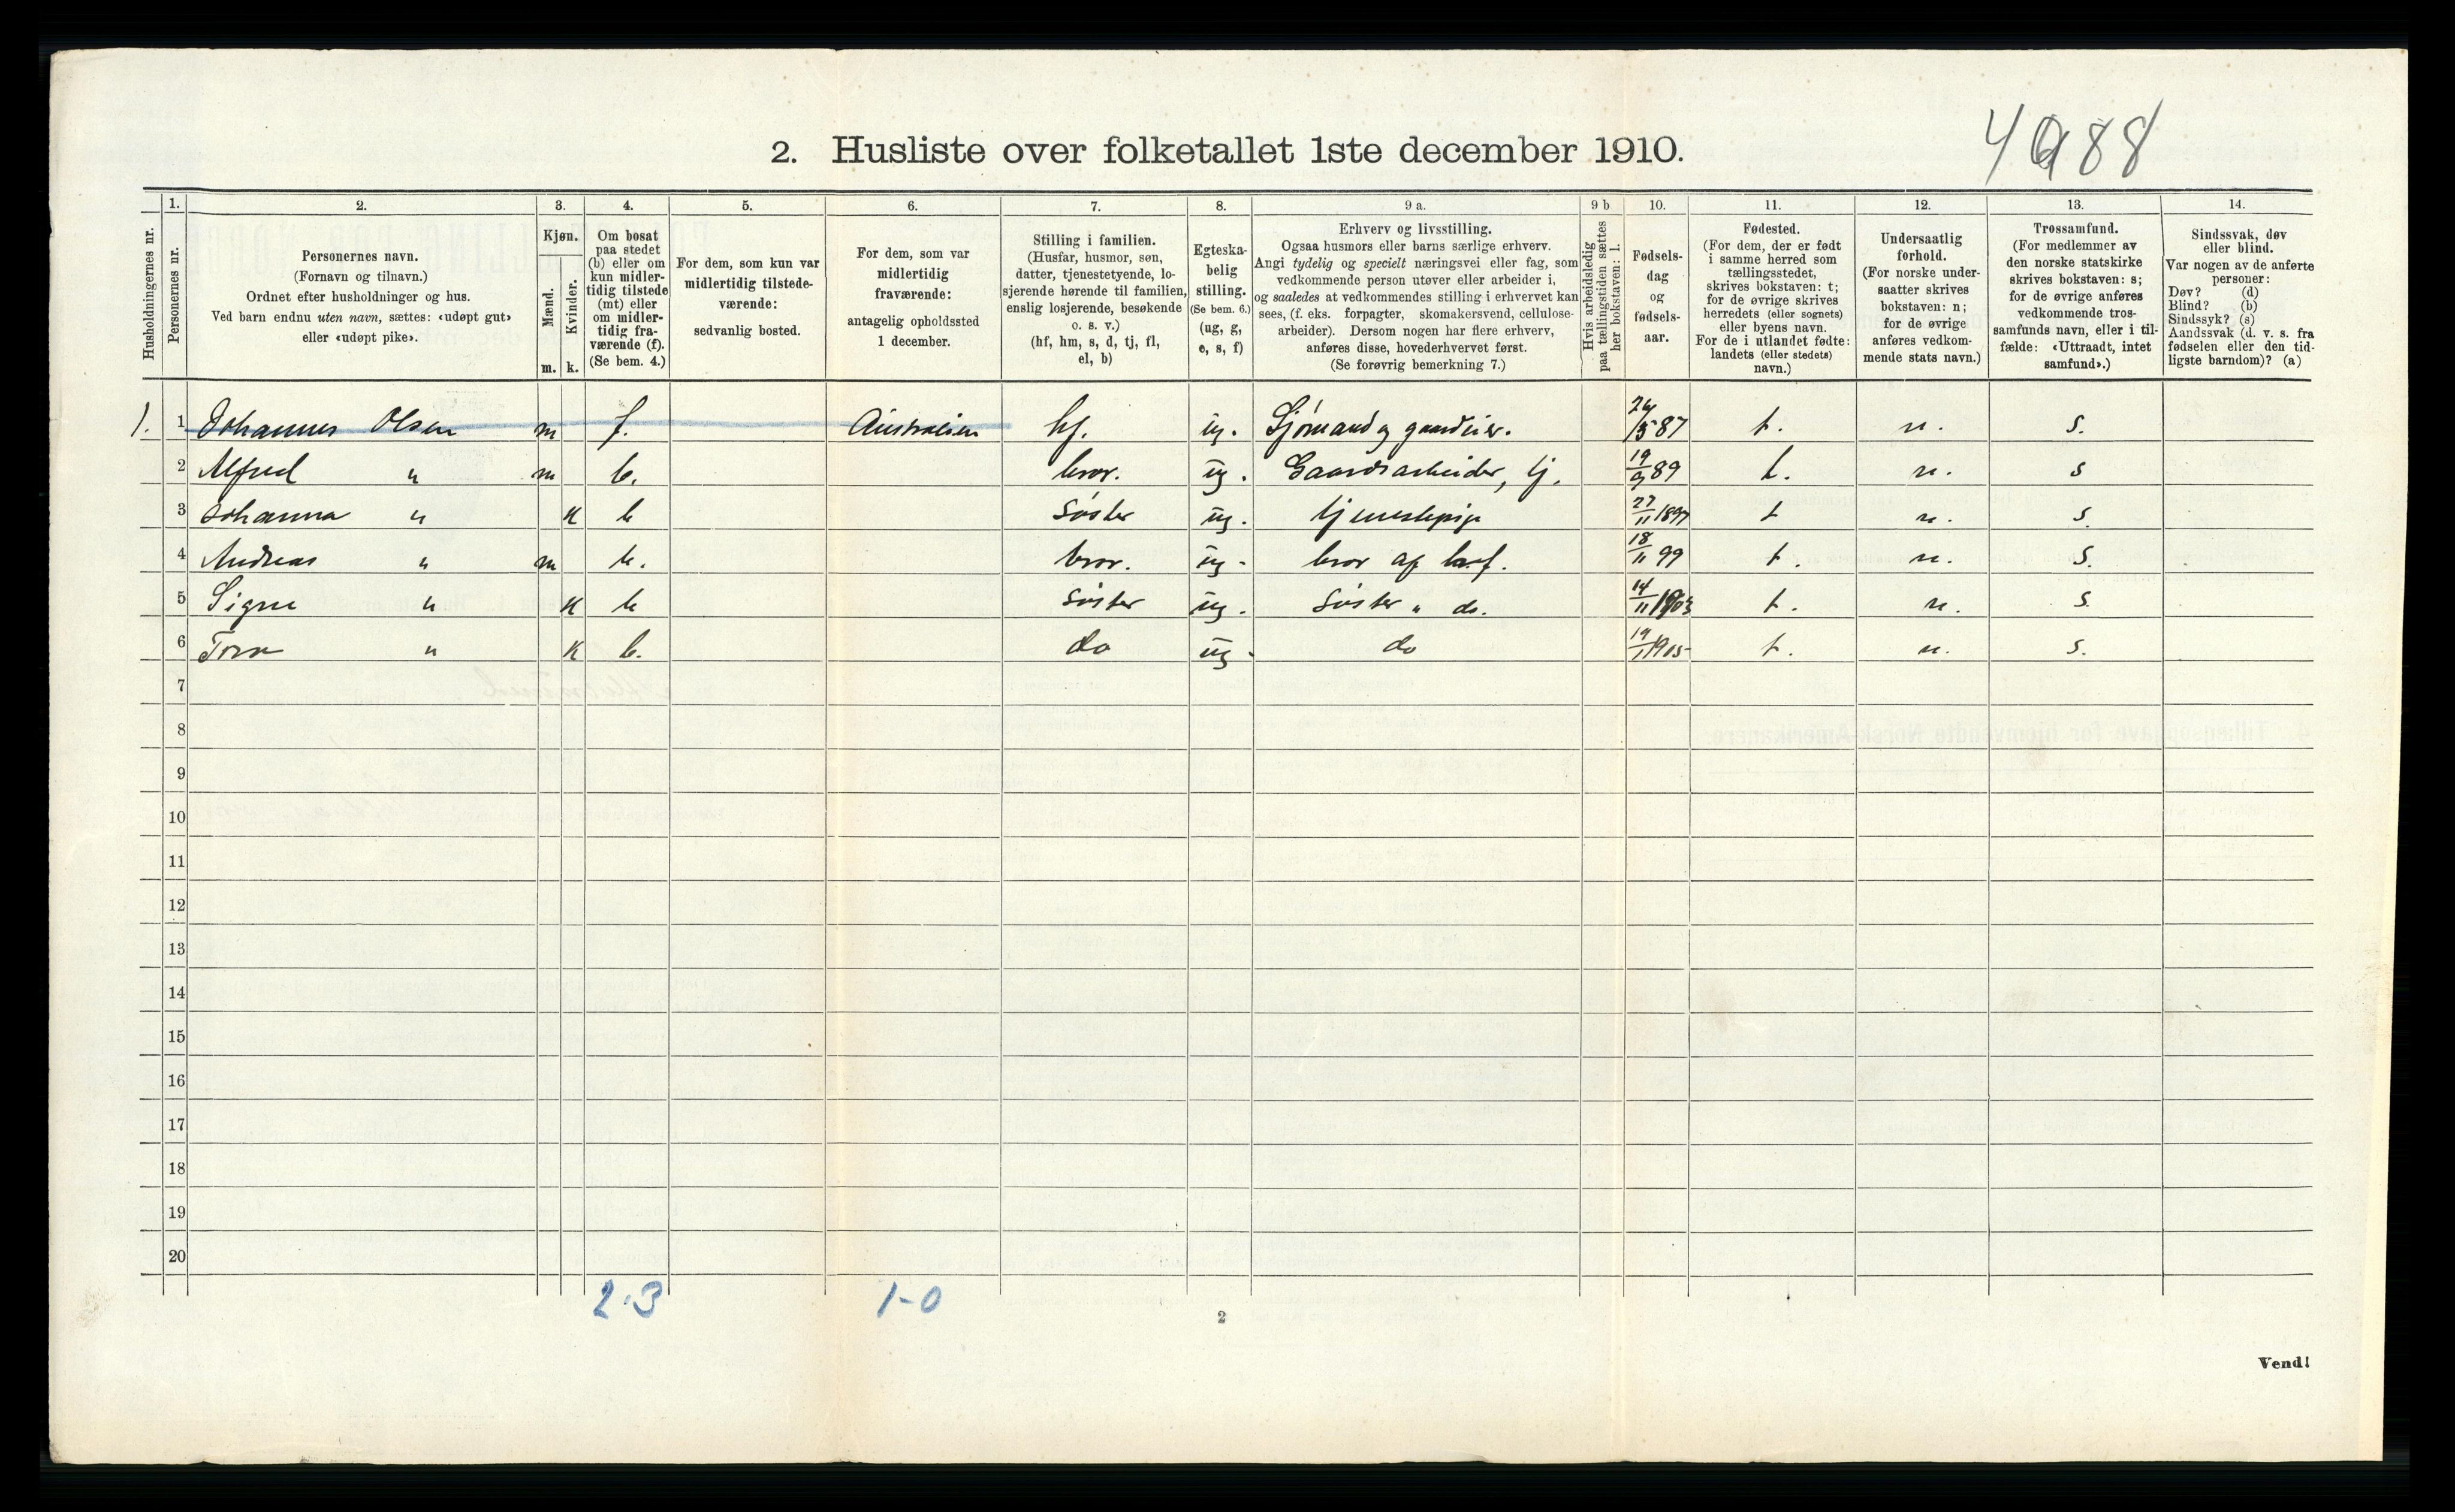 2. Husliste over folketallet 1ste december 1910.
Husholdningernes nr.
1.
Personernes nr.
2.
Personernes navn.
(Fornavn og tilnavn.)
Ordnet efter husholdninger og hus.
Ved barn endnu uten navn, sættes: «udøpt gut»
eller «udøpt pike».
3.
Kjøn.
Mænd.
Kvinder.
m. k.
4.
Om bosat
paa stedet
(b) eller om
kun midler-
tidig tilstede
(mt) eller
om midler-
tidig fra-
værende (f).
(Se bem. 4.)
5.
For dem, som kun var
midlertidig tilstede-
værende:
sedvanlig bosted.
6.
For dem, som var
midlertidig
fraværende:
antagelig opholdssted
1 december.
7.
Stilling i familien.
(Husfar, husmor, søn,
datter, tjenestetyende, lo-
sjerende hørende til familien,
enslig losjerende, besøkende
o. s. v.)
(hf, hm, s, d, tj, fl,
el, b)
8.
Egteska-
belig
stilling.
(Se bem. 6.)
(ug, g,
e, s, f)
9 a.
Erhverv og livsstilling.
Ogsaa husmors eller barns særlige erhverv.
Angi tydelig og specielt næringsvei eller fag, som
vedkommende person utøver eller arbeider i,
og saaledes at vedkommendes stilling i erhvervet kan
sees, (f. eks. forpagter, skomakersvend, cellulose-
arbeider). Dersom nogen har flere erhverv,
anføres disse, hovederhvervet først.
(Se forøvrig bemerkning 7.)
9 b
Hvis arbeidsledig
paa tællingstiden sættes
her bokstaven: l.
10.
Fødsels-
dag
og
fødsels-
aar.
11.
Fødested.
(For dem, der er født
i samme herred som
tællingsstedet,
skrives bokstaven: t;
for de øvrige skrives
herredets (eller sognets)
eller byens navn.
For de i utlandet fødte:
landets (eller stedets)
navn.)
12.
Undersaatlig
forhold.
(For norske under-
saatter skrives
bokstaven: n;
for de øvrige
anføres vedkom-
mende stats navn.)
13.
Trossamfund.
(For medlemmer av
den norske statskirke
skrives bokstaven: s;
for de øvrige anføres
vedkommende tros-
samfunds navn, eller i til-
fælde: «Uttraadt, intet
samfund».)
14.
Sindssvak, døv
eller blind.
Var nogen av de anførte
personer:
Døv? (d)
Blind? (b)
Sindssyk? (s)
Aandssvak (d. v. s. fra
fødselen eller den tid-
ligste barndom)? (a)
1. 1 Johannes Olsen m f. Australien hf. ug. Sjømand og gaardeier. 26/5 87 t. n. s.
2 Alfred " m b. bror. ug. Gaardsarbeider, tj. 19/9 89 t. n. s
3 Johanna " K b Søster ug. tjenestepige 27/11 1897 t n. s.
4 Andreas " m b. bror. ug. bror af hf. 18/11 99 t. n. s.
5 Signe " K b Søster ug. Søster " do. 14/11 1903 t. n. s.
6 Tora " K b. do ug. do 19/11 1905 t. n. s.
7
8
9
10
11
12
13
14
15
16
17
18
19
20
2-3 1-0
2
Vend!